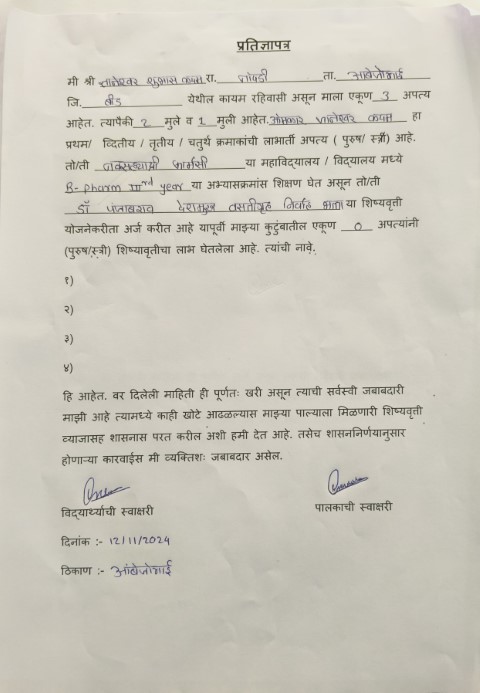 प्रतिज्ञापत्र
मी श्री ज्ञानेश्वर सुभास कदम रा. ता. आंबेजोगाई
जि. बीड येथील कायम रहिवासी असून माला एकूण 3 अपत्य
आहेत. त्यापैकी 2 मुले व 1 मुली आहेत. ओमकार ज्ञानेश्वर कदम हा
प्रथमा/ व्दितीय / तृतीय / चतुर्थ क्रमाकांची लाभार्ती अपत्य ( पुरुष/ स्त्री) आहे.
तो/ती फार्मसी या महाविद्यालय / विद्यालय मध्ये
B-pharm IIIrd year या अभ्यासक्रमांस शिक्षण घेत असून तो/ती
डॉ पंजाबराव देशमुख वसतीगृह निर्वाह भत्ता या शिष्यवृत्ती
योजनेकरीता अर्ज करीत आहे यापूर्वी माझ्या कुटुंबातील एकूण 0 अपत्यांनी
(पुरुष/स्त्री) शिष्यावृतीचा लाभ घेतलेला आहे. त्यांची नावे.
१)
२)
३)
४)
हि आहेत. वर दिलेली माहिती ही पूर्णतः खरी असून त्याची सर्वस्वी जबाबदारी
माझी आहे त्यामध्ये काही खोटे आढळल्यास माझ्या पाल्याला मिळणारी शिष्यवृत्ती
व्याजासह शासनास परत करील अशी हमी देत आहे. तसेच शासननिर्णयानुसार
होणाऱ्या कारवाईस मी व्यक्तिशः जबाबदार असेल.
विद्यार्थ्याची स्वाक्षरी पालकाची स्वाक्षरी
दिनांक :- 12/11/2024
ठिकाण :- आंबेजोगाई